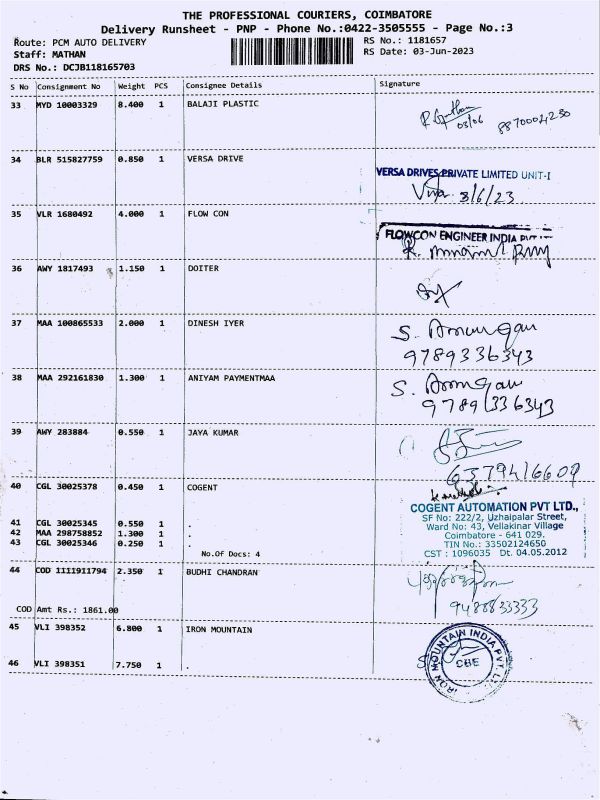 THE PROFESSIONAL COURIERS, COIMBATORE
Delivery Runsheet - PNP - Phone No.:0422-3505555 - Page No.:3
Route: PCM AUTO DELIVERY
RS No.: 1181657
Staff: MATHAN
RS Date: 03-Jun-2023
DRS No.: DCJB118165703
S No Consignment No Weight PCS Consignee Details Signature
33 MYD 10003329 8.400 1 BALAJI PLASTIC
03/06
34 BLR 515827759 0.850 1 VERSA DRIVE
VERSA DRIVES PRIVATE LIMITED UNIT-I
3/6/23
35 VLR 1680492 4.000 1 FLOW CON
FLOWCON ENGINEER INDIA PVT
36 AWY 1817493 1.150 1 DOITER
37 MAA 100865533 2.000 1 DINESH IYER
S.
9789336343
38 MAA 292161830 1.300 1 ANIYAM PAYMENTMAA
S.
9789336343
39 AWY 283884 0.550 1 JAYA KUMAR
40 CGL 30025378 0.450 1 COGENT
COGENT AUTOMATION PVT LTD.,
SF No: 222/2, Uzhaipalar Street,
Ward No: 43, Vellakinar Village
Coimbatore - 641 029.
TIN No.: 33502124650
CST : 1096035 Dt. 04.05.2012
41 CGL 30025345 0.550 1 .
42 MAA 298758852 1.300 1 .
43 CGL 30025346 0.250 1 .
No.Of Docs: 4
44 COD 1111911794 2.350 1 BUDHI CHANDRAN
9488833333
COD Amt Rs.: 1861.00
45 VLI 398352 6.800 1 IRON MOUNTAIN
IRON MOUNTAIN INDIA PVT. LTD
CBE
46 VLI 398351 7.750 1 .